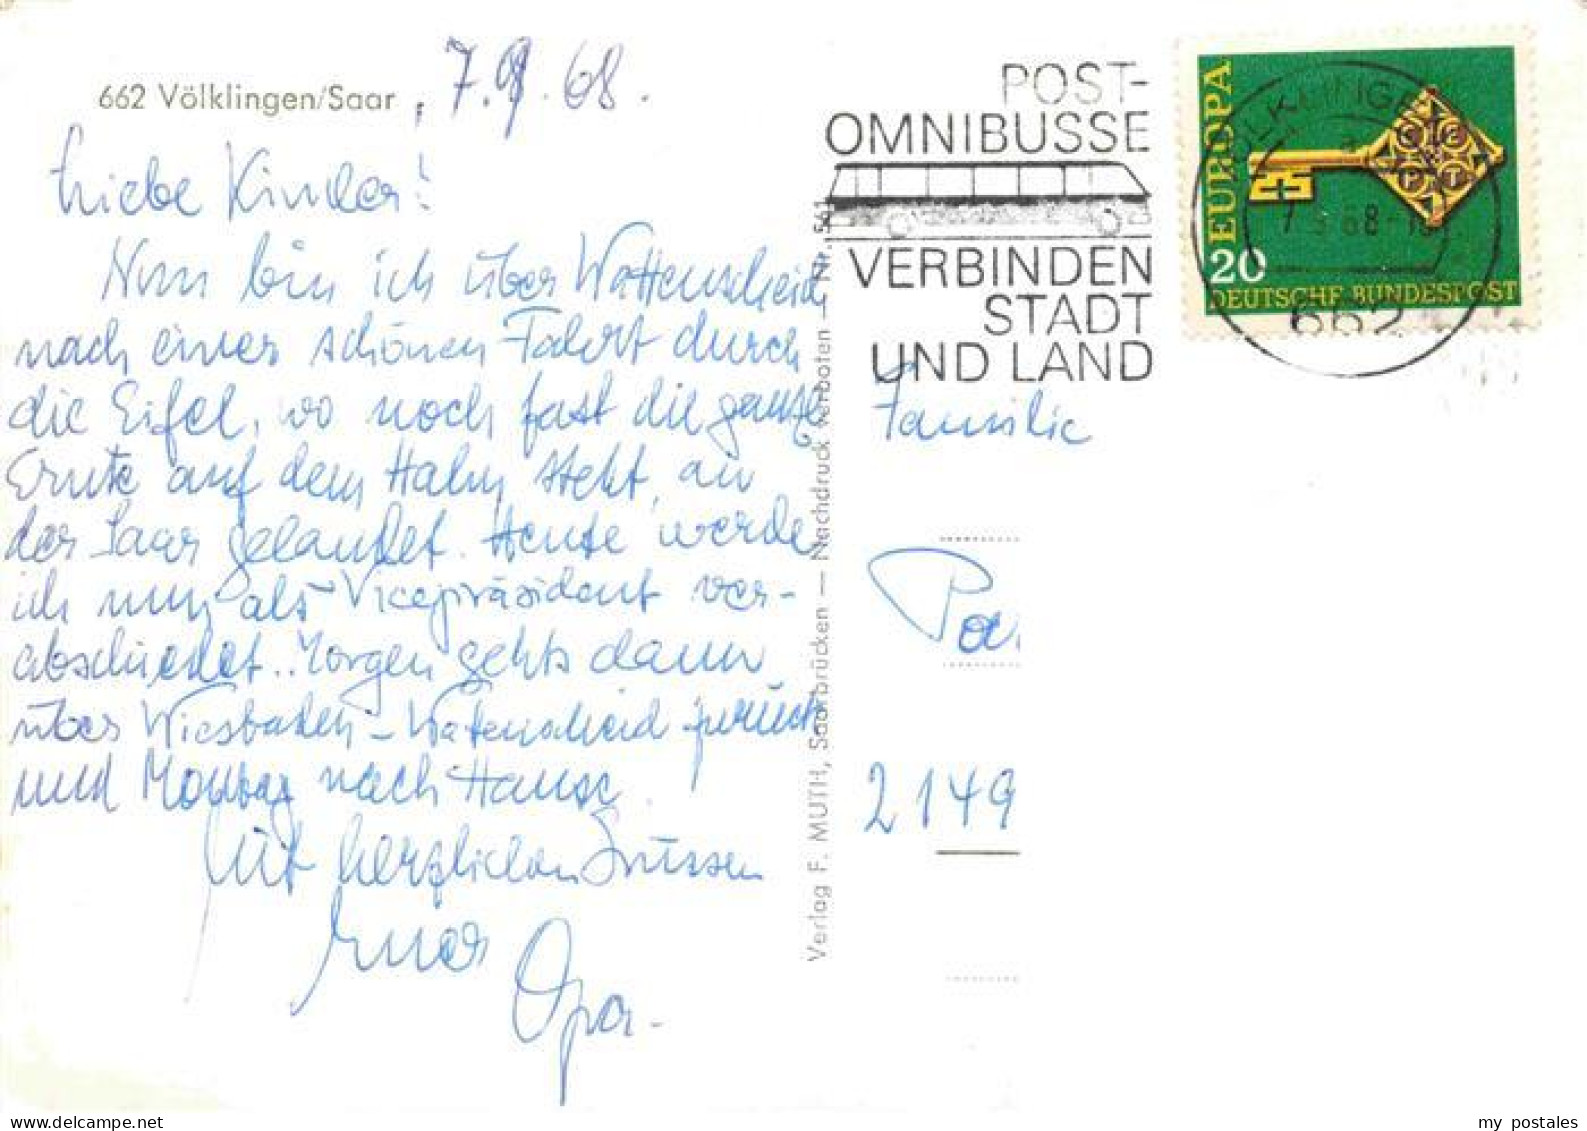 662 Völklingen/Saar, 7.9.68.
Liebe Kinder!
Nun bin ich über Wattenscheid
nach einer schönen Fahrt durch
die Eifel, wo noch fast die ganze
Ernte auf dem Halm steht, an
der Saar gelandet. Heute werde
ich nun als Vicepräsident ver-
abschiedet. Morgen gehts dann
über Wiesbaden - Wattenscheid zurück
und Montag nach Hause.
Mit herzlichen Grüssen
Euer
Opa.
Verlag F. MUTH, Saarbrücken — Nachdruck verboten — Nr.
POST-
OMNIBUSSE
VERBINDEN
STADT
UND LAND
EUROPA
CEPT
20
DEUTSCHE BUNDESPOST
VÖLKLINGEN
662
Familie
2149
my postales